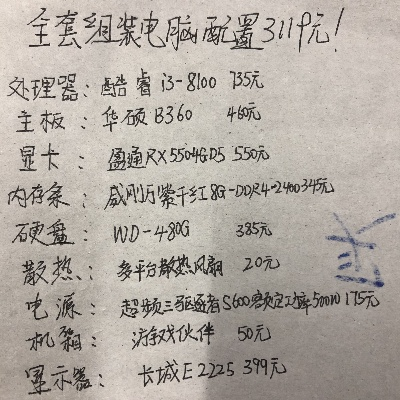 全套组装电脑配置3119元!
处理器: 酷睿i3-8100 735元
主板: 华硕B360 460元
显卡: 盈通RX550-4GD5 550元
内存条: 威刚万紫千红8G-DDR4-2400 345元
硬盘: WD-480G 385元
散热: 多平台散热风扇 20元
电源: 超频三驱逐者S600额定功率500W 175元
机箱: 游戏伙伴 50元
显示器: 长城E2225 399元